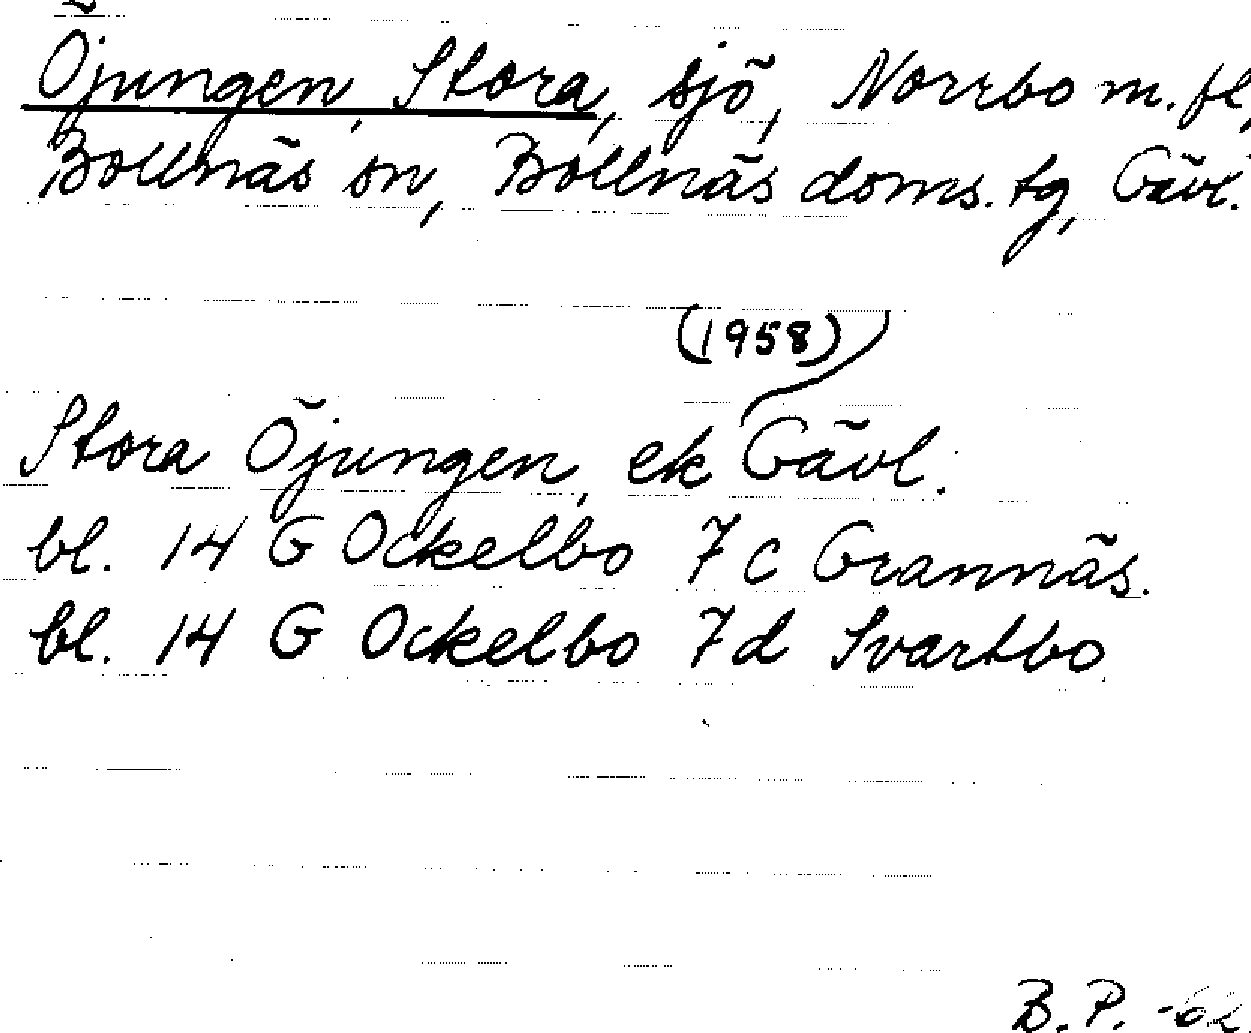 Öjungen, Stora, sjö, Norrbo m.fl,
Bollnäs sn, Bollnäs doms. tg, Gävl.
(1958)
Stora Öjungen, ek Gävl.
bl. 14 G Ockelbo 7 c Grannäs.
bl. 14 G Ockelbo 7 d Svartbo.
B.P. -62.